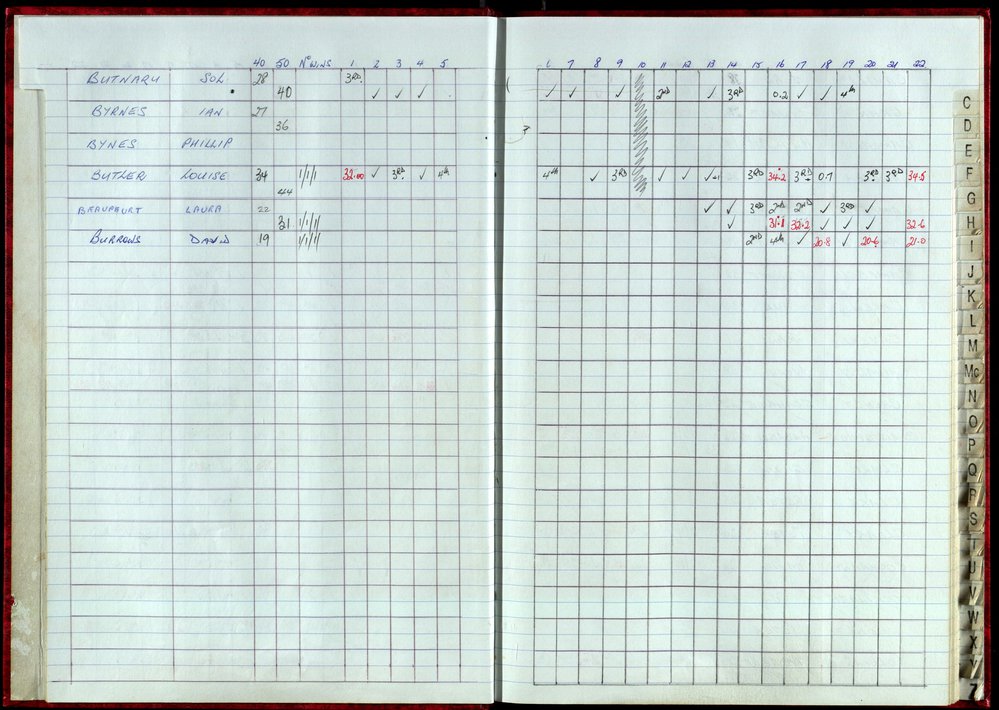 40 50 No WINS 1 2 3 4 5 6 7 8 9 10 11 12 13 14 15 16 17 18 19 20 21 22
BUTNARU SOL 28 3RD.
40 ✓ ✓ ✓ ✓ ✓ ✓ 2nd ✓ 3RD 0.2 ✓ ✓ 4th
BYRNES IAN 27
36
BYNES PHILLIP
BUTLER LOUISE 34 1/1/1 32.00 ✓ 3RD ✓ 4th 4th ✓ 3RD ✓ ✓ ✓ 3RD 34.2 3RD 0.1 3RD 3RD 34.5
44
LAURA 22 ✓ ✓ 3RD 2ND 2ND ✓ 3RD ✓
31 1/1/1/ ✓ 31.1 32.2 ✓ ✓ ✓ 32.6
BURROWS DAVID 19 1/1/1/ 2ND 4th ✓ 20.8 ✓ 20.6 21.0
C
D
E
F
G
H
I
J
K
L
M
Mc
N
O
P
Q
R
S
T
U
V
W
X
Y
Z